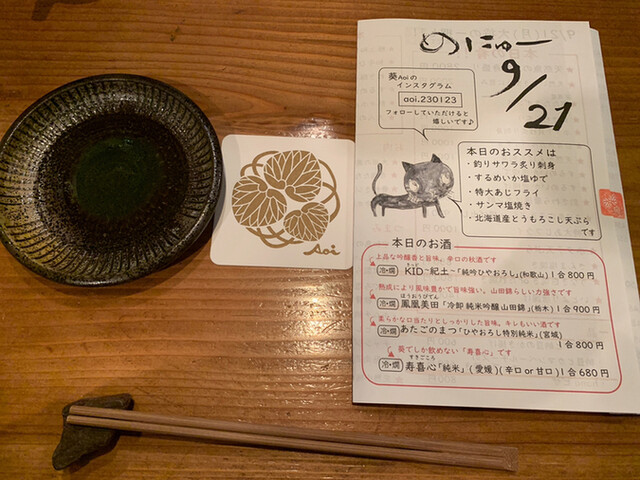 Aoi
めにゅー
9/21
葵Aoiの
インスタグラム
aoi.230123
フォローしていただけると
嬉しいです♪
本日のおススメは
・釣りサワラ炙り刺身
・するめいか塩ゆで
・特大あじフライ
・サンマ塩焼き
・北海道産とうもろこし天ぷら
です
本日のお酒
上品な吟醸香と旨味。辛口の秋酒です
冷・燗 KID~紀土~「純吟ひやおろし」(和歌山) 1合800円
熟成により風味豊かで旨味強い。山田錦らしい力強さです
ほうおうびでん
冷・燗 鳳凰美田「冷卸 純米吟醸 山田錦」(栃木) 1合900円
柔らかな口当たりとしっかりした旨味。キレもいい酒です
冷・燗 あたごのまつ「ひやおろし特別純米」(宮城)
1合800円
葵でしか飲めない「寿喜心」です
すきごころ
冷・燗 寿喜心「純米」(愛媛)(辛口or甘口) 1合680円